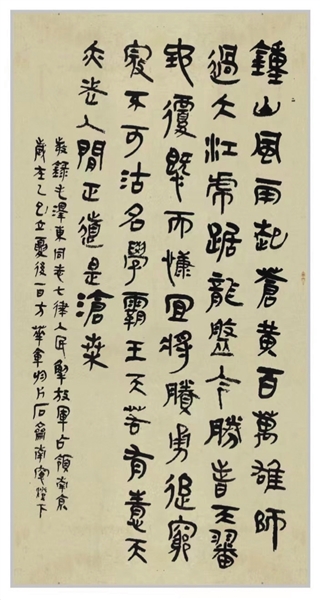 鍾山風雨起蒼黃百萬雄師
過大江虎踞龍盤今勝昔天翻
地覆慨而慷宜將賸勇追窮
寇不可沽名學霸王天若有情天
亦老人間正道是滄桑
敬錄毛澤東同志七律人民解放軍占領南京
歲在乙巳立夏後一日方華片石齋南寧燈下